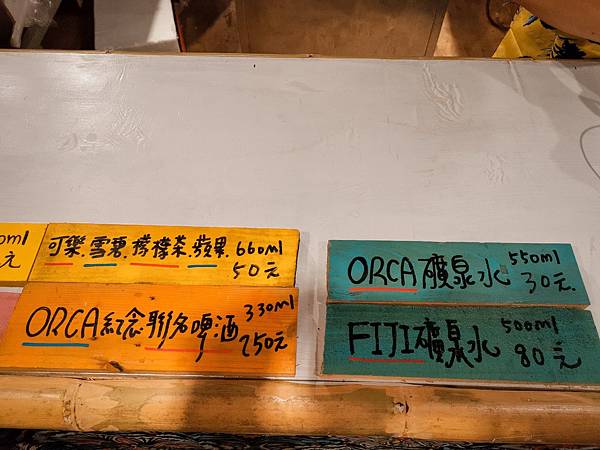 0ml
元
可樂.雪碧.檸檬茶.蘋果. 660ml
50元
ORCA紀念聯名啤酒 330ml
250元
ORCA礦泉水 550ml
30元.
FIJI礦泉水 500ml
80元